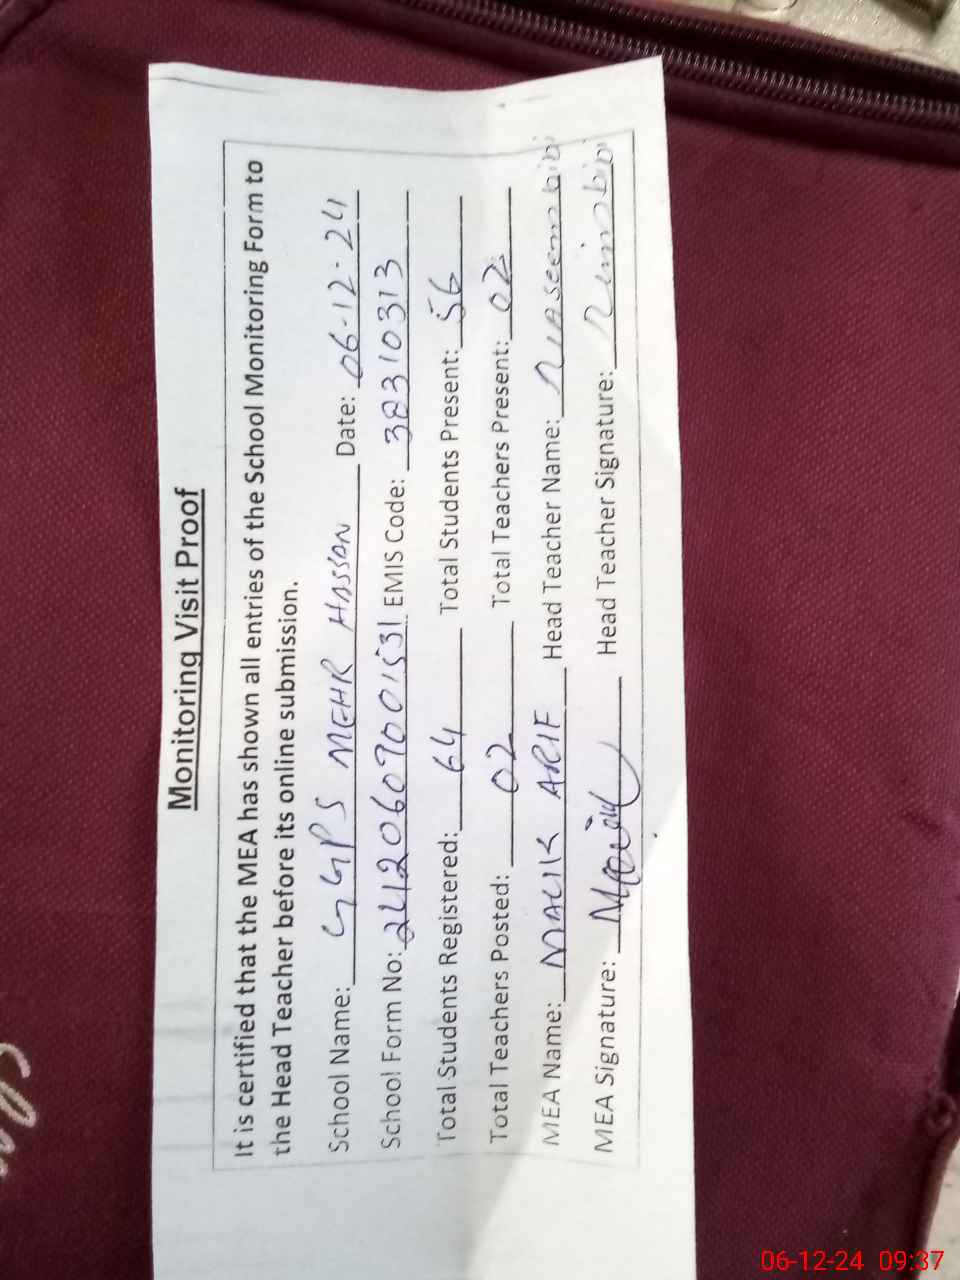 Monitoring Visit Proof
It is certified that the MEA has shown all entries of the School Monitoring Form to
the Head Teacher before its online submission.
School Name: GGPS MEHR HASSAN Date: 06-12-24
School Form No: 24120609001531 EMIS Code: 38310313
Total Students Registered: 64 Total Students Present: 56
Total Teachers Posted: 02 Total Teachers Present: 02
MEA Name: MALIK ARIF Head Teacher Name: Naseem bibi
MEA Signature: Head Teacher Signature: bibi
06-12-24 09:37